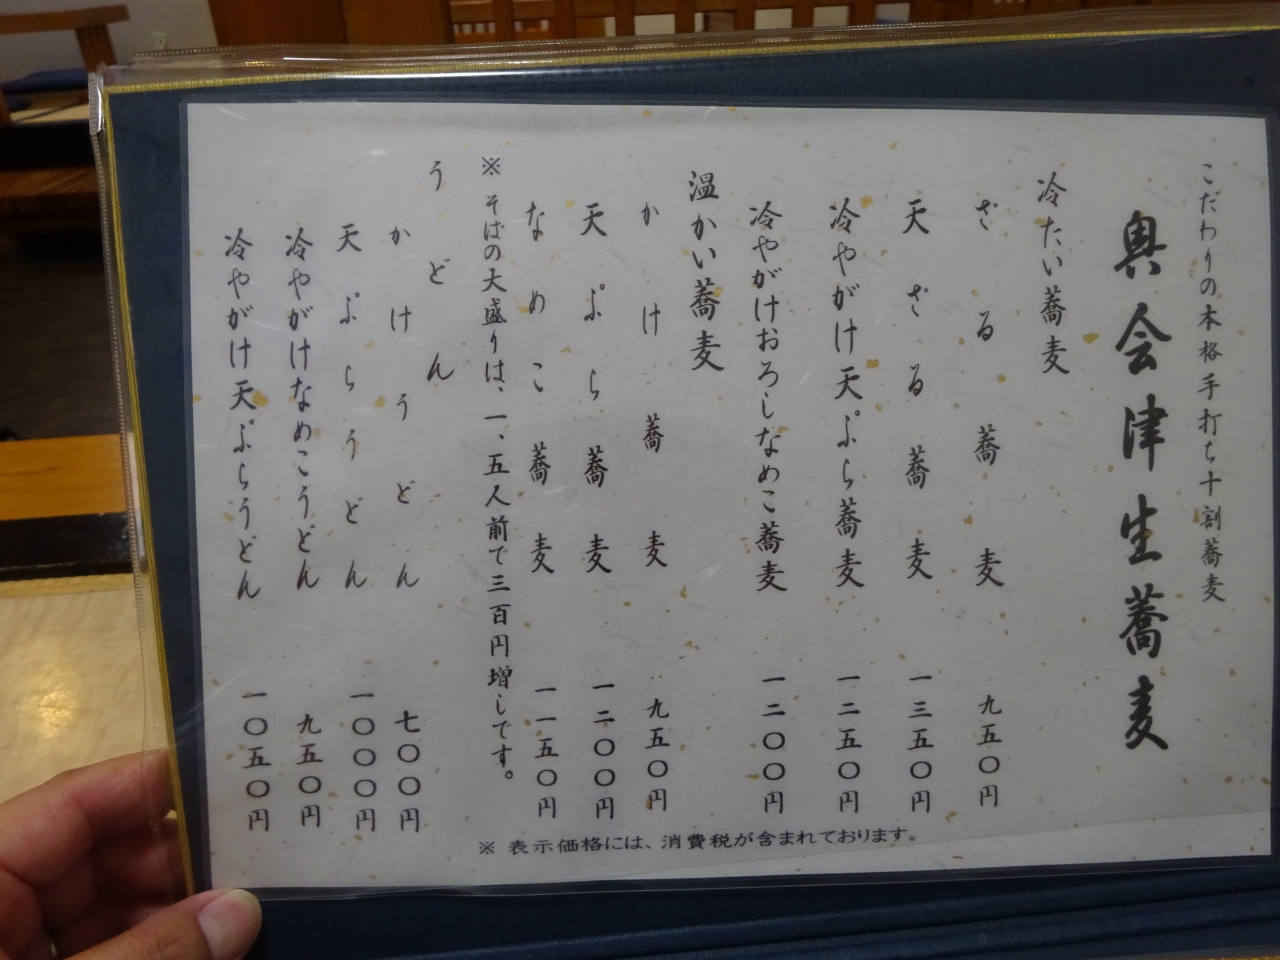 こだわりの本格手打ち十割蕎麦
奥会津生蕎麦
冷たい蕎麦
ざる蕎麦 九五〇円
天ざる蕎麦 一三五〇円
冷やがけ天ぷら蕎麦 一二五〇円
冷やがけおろしなめこ蕎麦 一二〇〇円
温かい蕎麦
かけ蕎麦 九五〇円
天ぷら蕎麦 一二〇〇円
なめこ蕎麦 一一五〇円
※そばの大盛りは、一、五人前で三百円増しです。
うどん
かけうどん 七〇〇円
天ぷらうどん 一〇〇〇円
冷やがけなめこうどん 九五〇円
冷やがけ天ぷらうどん 一〇五〇円
※ 表示価格には、消費税が含まれております。